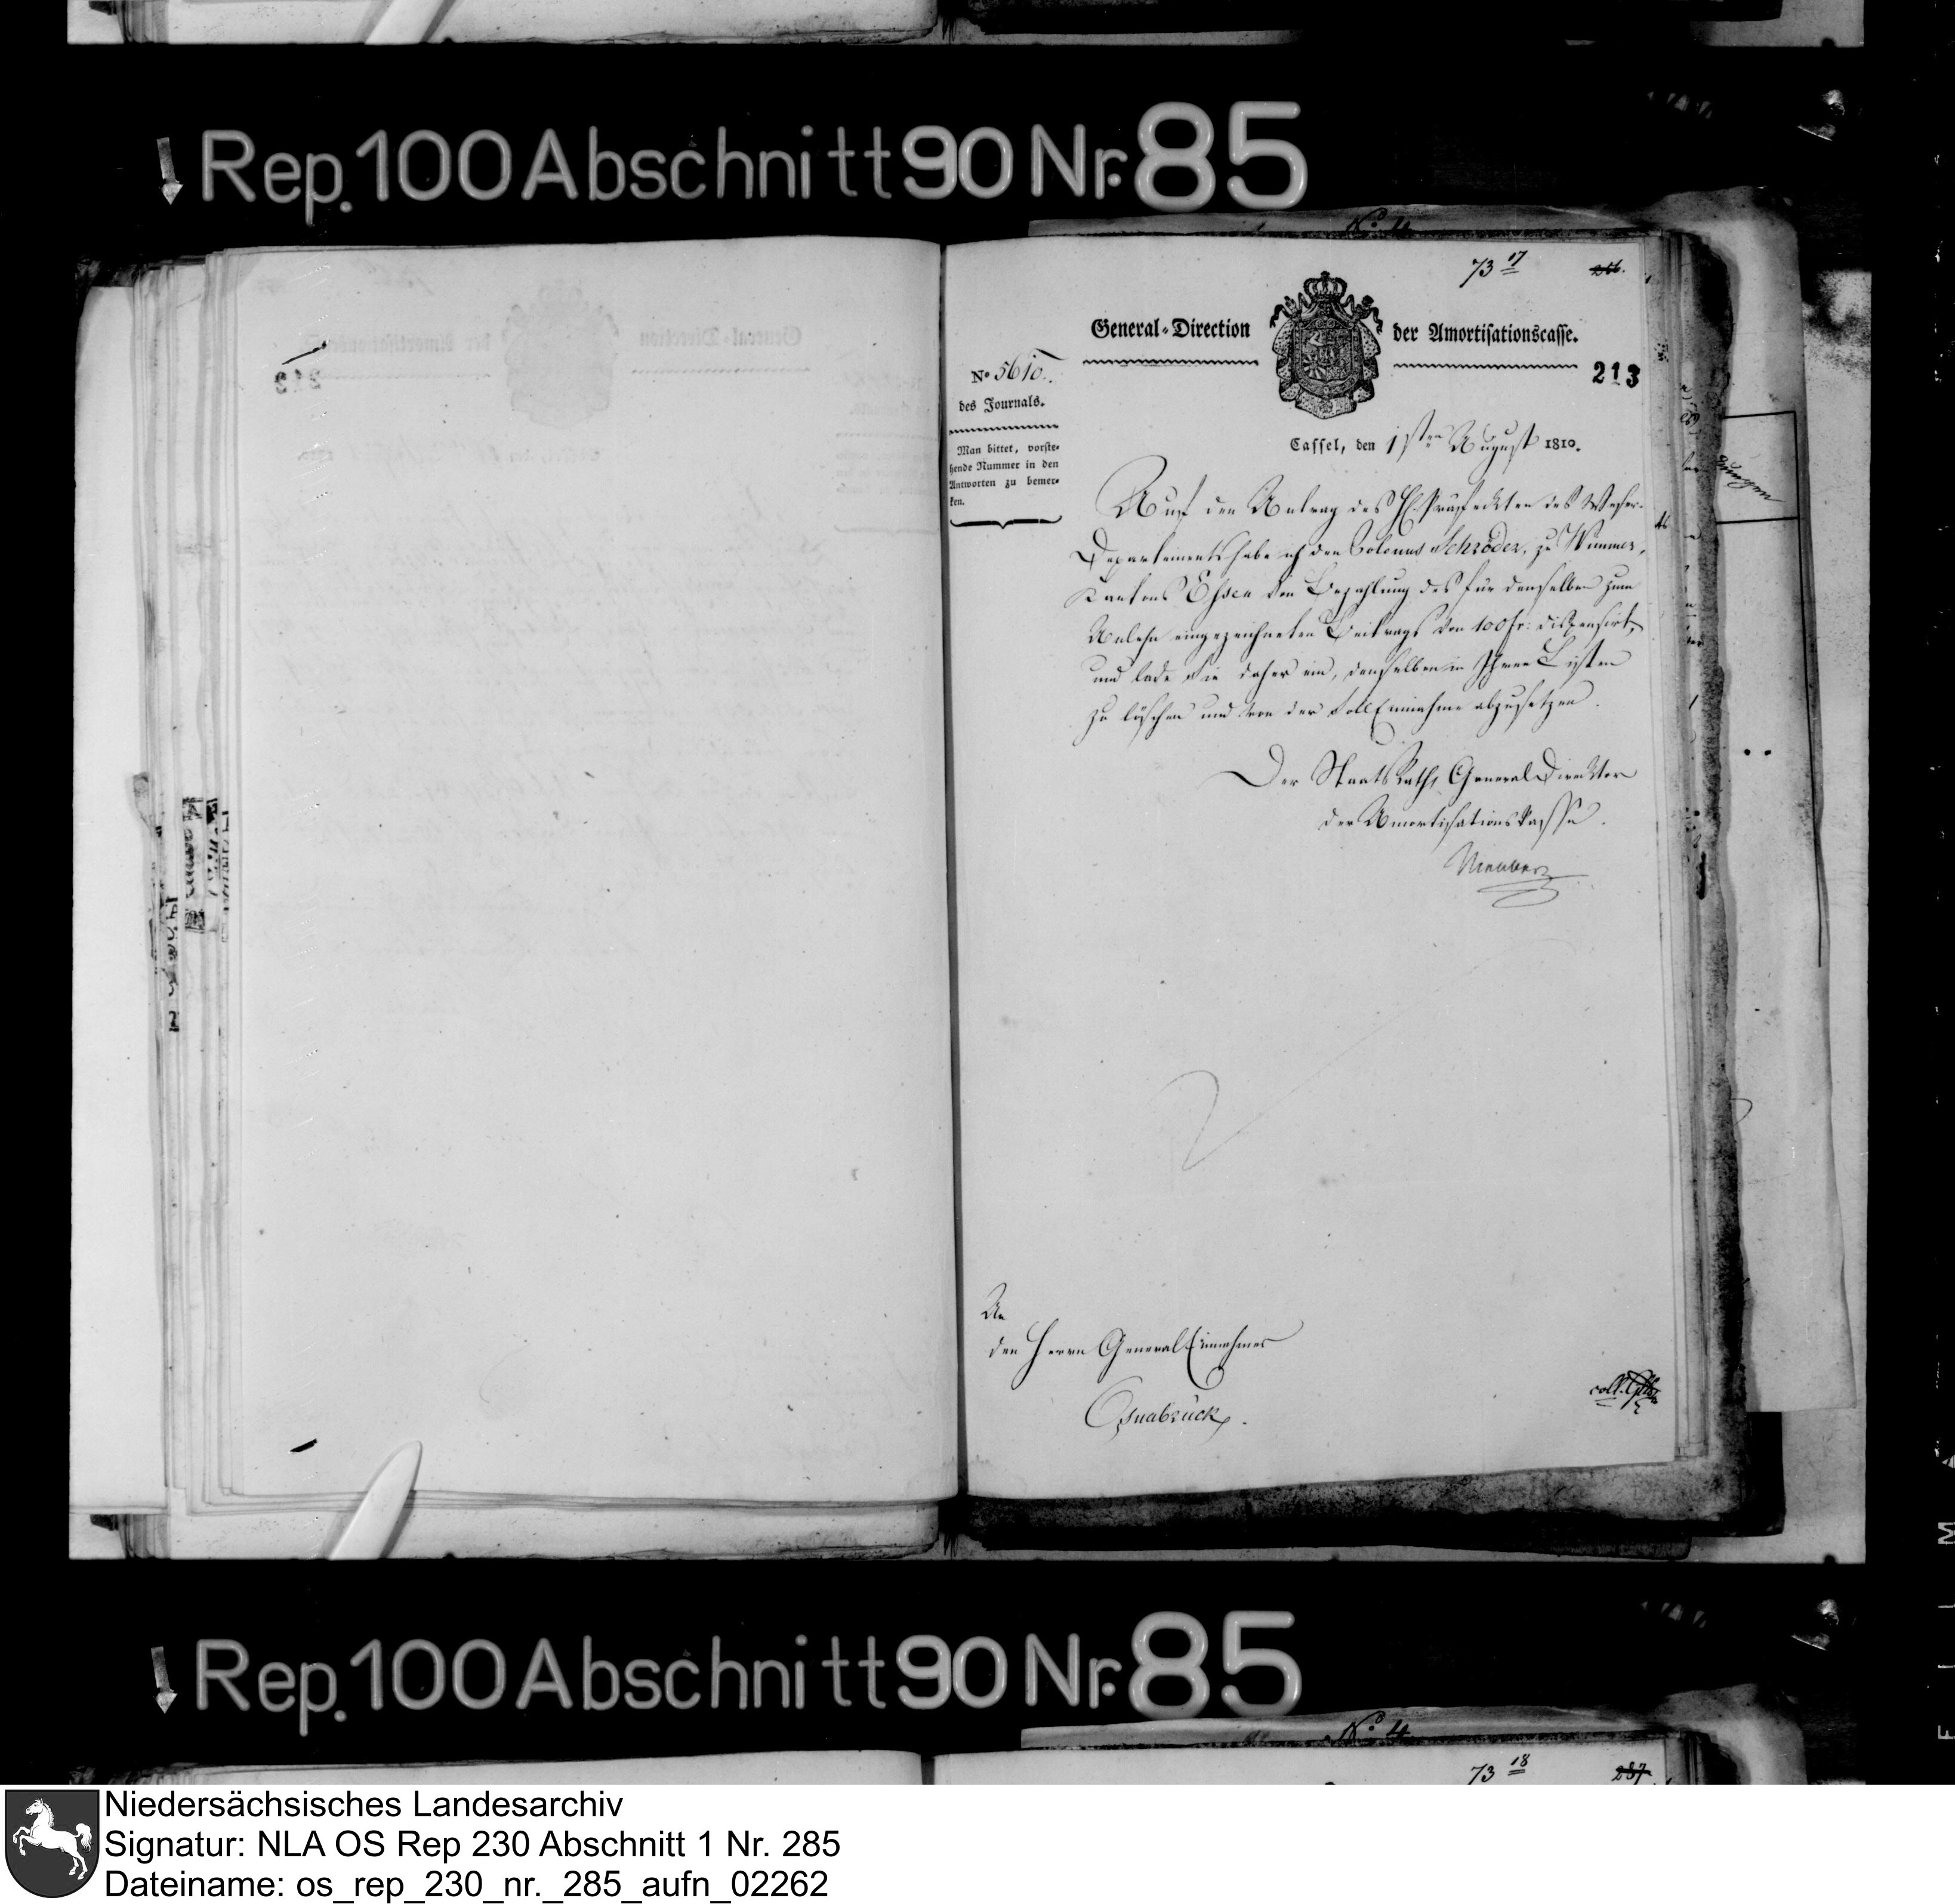 Rep. 100 Abschnitt 90 Nr. 85
No 4
73 17
256.
General-Direction der Amortisationscasse.
213
No 5610.
des Journals.
Man bittet, vorste-
hende Nummer in den
Antworten zu bemer-
ken.
Cassel, den 1sten August 1810.
Auf den Antrag des H. Präfeckten des Weser-
Departements habe ich den Colonus Schröder, zu Wimmer,
Kantons Essen von Bezahlung des für denselben zum
Anlehn eingezeichneten Beitrags von 100 fr: dispensirt,
und lade Sie daher ein, denselben in Ihren Listen
zu löschen und von der Soll Einnahme abzusetzen.
Der Staats Rath, General Direktor
der Amortisationskasse.
An
den Herrn General Einnehmer
Osnabrück.
Rep. 100 Abschnitt 90 Nr. 85
No 4
73 18
257.
Niedersächsisches Landesarchiv
Signatur: NLA OS Rep 230 Abschnitt 1 Nr. 285
Dateiname: os_rep_230_nr._285_aufn_02262